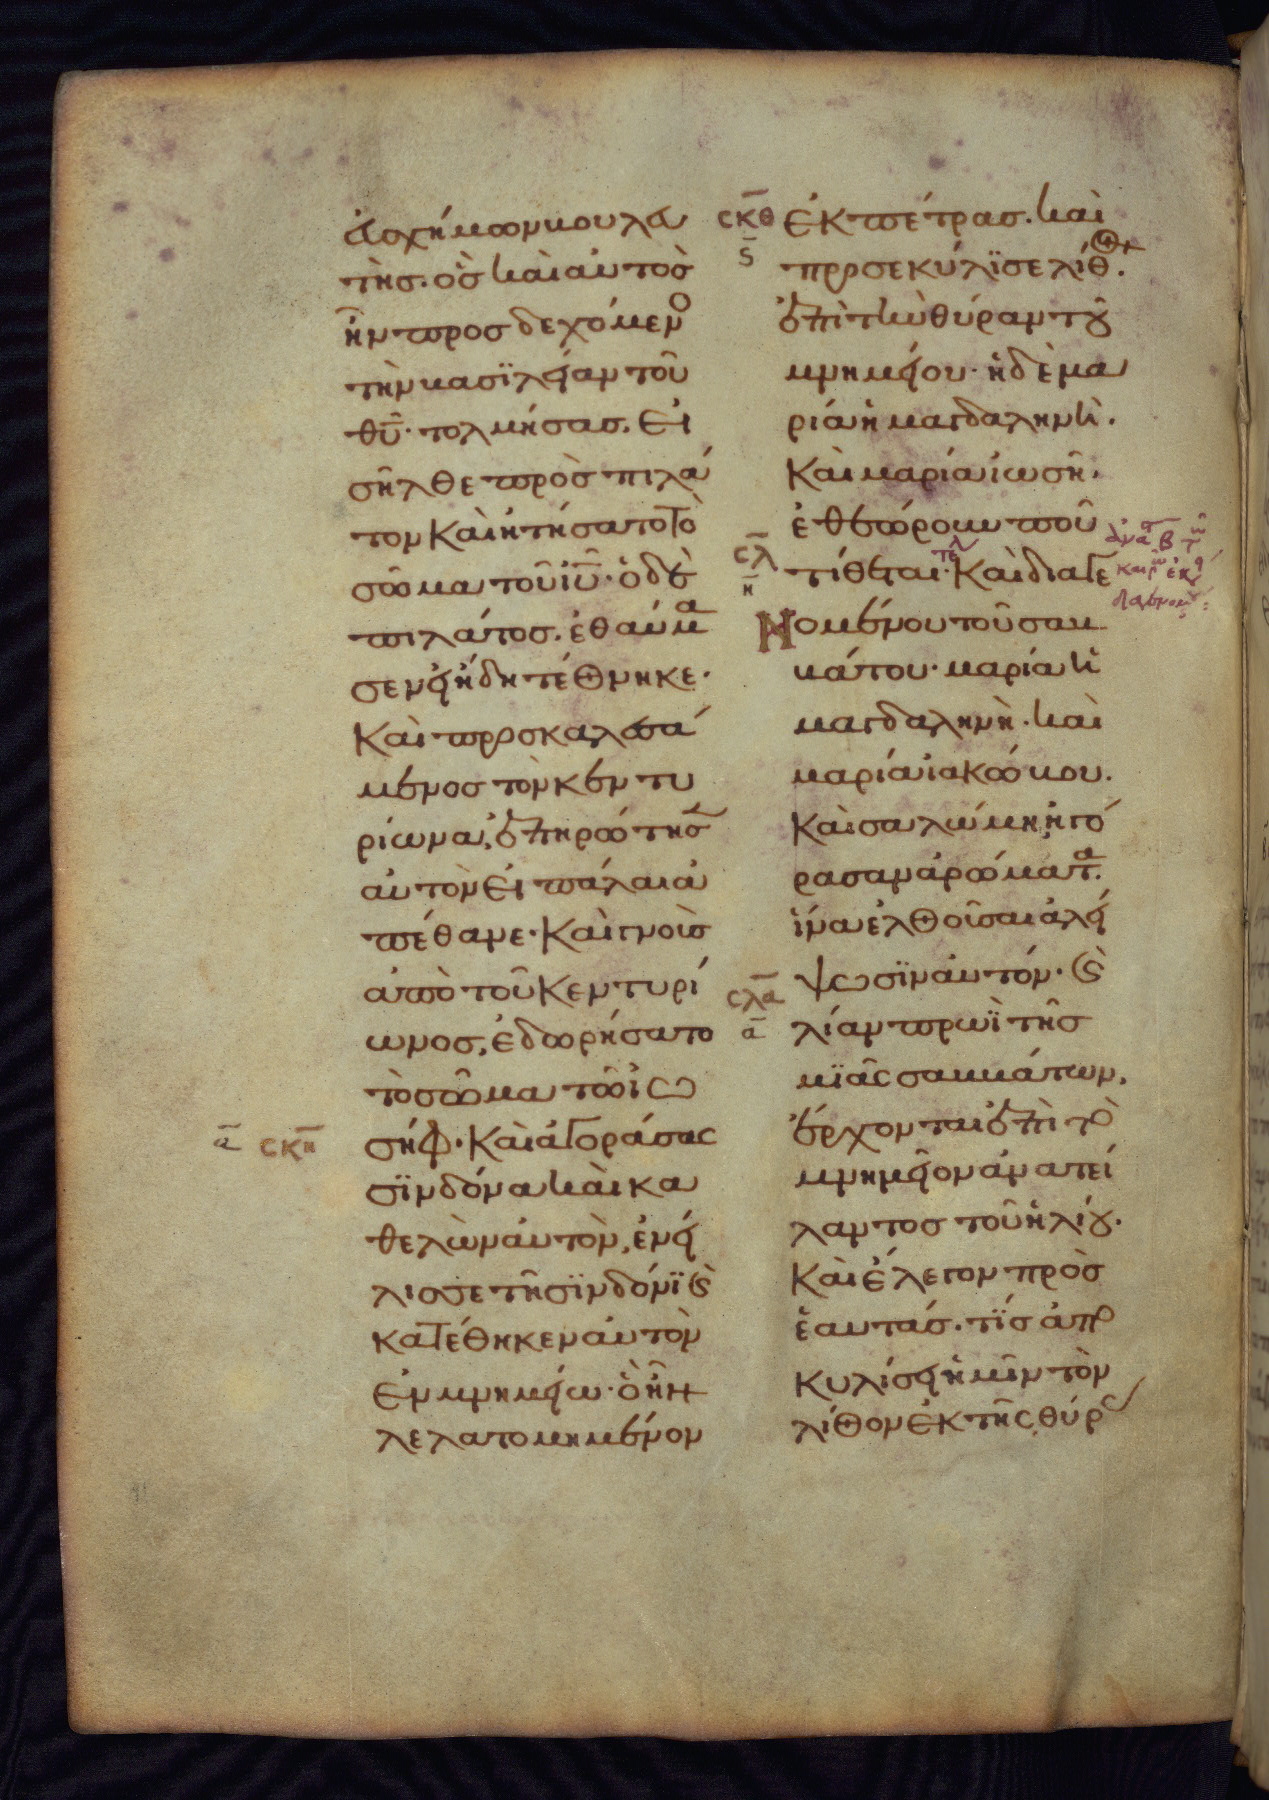 ἀσχήμων βουλευ
τὴσ· ὃσ καὶ αὐτὸσ
ἦν προσδεχόμενο
τὴν βασϊλείαν τοῦ
θῦ· τολμήσασ. Εἰ
σῆλθε πρὸσ πιλά
τον Καὶ ἠτήσατο τὸ
σῶμα τοῦ ἰῦ· ὁ δὲ
πιλάτοσ. ἐθαύμα
σεν εἰ ἤδη τέθνηκε·
Καὶ προσκαλεσά
μενοσ τὸν κεντυ
ρίωνα, ἐπηρώτησ
αὐτὸν Εἰ πάλαι ἀ
πέθανε· Καὶ γνοὺσ
ἀπὸ τοῦ Κεντυρί
ωνοσ, ἐδωρήσατο
τὸ σῶμα τῶ ἰω
σήφ· Καὶ ἀγοράσασ
σϊνδόνα καὶ κα
θελὼν αὐτὸν, ἐνεί
λισσε τῆ σϊνδόνϊ (καὶ)
κατέθηκεν αὐτὸν
ἐν μνημείω· ὃ ἦν
λελατομημένον
σκη
α
σκθ
ϛ
ἐκ πέτρασ. καὶ
προσεκύλϊσε λίθον.
ἐπὶ τὴν θύραν τοῦ
μνημείου· ἡ δὲ μα
ρία ἡ μαγδαληνὴ.
Καὶ μαρία ἰωσῆ·
ἐθεώρουν ποῦ
σλ
η
τίθεται· τελ Καὶ διαγε
Νομένου τοῦ σαβ
βάτου· μαρία ἡ
μαγδαληνὴ· καὶ
μαρία ἰακώβου.
Καὶ σαλώμη ἠγό
ρασαν ἀρώματα.
ἵνα ἐλθοῦσαι ἀλεί
ψωσϊν αὐτόν· (καὶ)
σλα
α
λίαν πρωῒ τῆσ
μϊᾶς σαββάτων,
ἔρχονται ἐπὶ τὸ
μνημεῖον ἀνατεί
λαντοσ τοῦ ἡλίου·
Καὶ ἔλεγον πρὸσ
ἑαυτάσ· τίσ ἀπο
κυλίσει ἡμῖν τὸν
λίθον ἐκ τῆς θύρασ